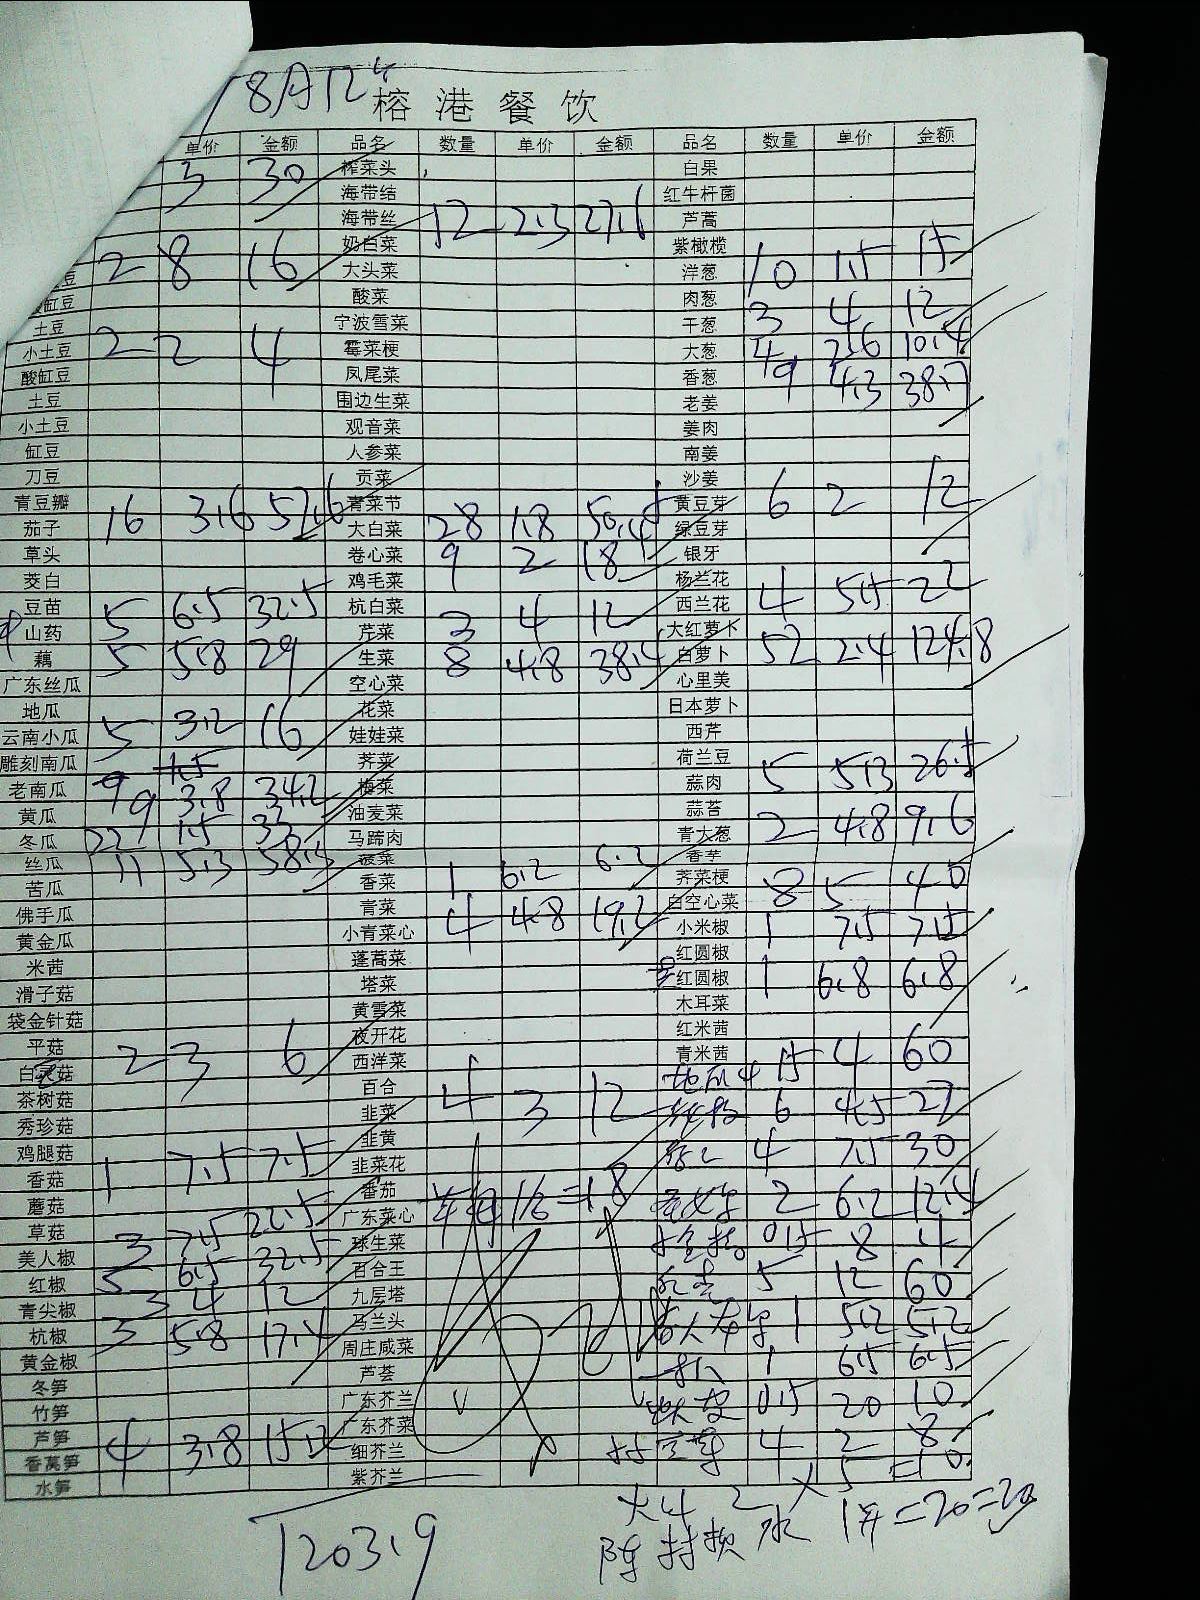 8月12
榕港餐饮
单价 金额 品名 数量 单价 金额 品名 数量 单价 金额
3 30 榨菜头 白果
海带结 红牛杆菌
海带丝 12 2.3 27.6 芦蒿
2 8 16 奶白菜 紫橄榄
豆 大头菜 洋葱 10 1.5 15
缸豆 酸菜 肉葱
土豆 宁波雪菜 干葱 3 4 12
小土豆 2 2 4 霉菜梗 大葱 4 2.6 10.4
酸缸豆 凤尾菜 香葱 9 4.3 38.7
土豆 围边生菜 老姜
小土豆 观音菜 姜肉
缸豆 人参菜 南姜
刀豆 贡菜 沙姜
青豆瓣 青菜节 黄豆芽 6 2 12
茄子 16 3.6 57.6 大白菜 28 1.8 50.4 绿豆芽
草头 卷心菜 9 2 18 银牙
茭白 鸡毛菜 杨兰花
豆苗 5 6.5 32.5 杭白菜 西兰花 4 5.5 22
山药 芹菜 3 4 12 大红萝卜
藕 5 5.8 29 生菜 8 4.8 38.4 白萝卜 52 2.4 124.8
广东丝瓜 空心菜 心里美
地瓜 花菜 日本萝卜
云南小瓜 5 3.2 16 娃娃菜 西芹
雕刻南瓜 荠菜 荷兰豆
老南瓜 9 3.8 34.2 梅菜 蒜肉 5 5.3 26.5
黄瓜 油麦菜 蒜苔
冬瓜 22 1.5 33 马蹄肉 青大葱 2 4.8 9.6
丝瓜 11 5.3 58.3 菠菜 香芋
苦瓜 香菜 1 6.2 6.2 荠菜梗 8 5 40
佛手瓜 青菜 白空心菜
黄金瓜 小青菜心 4 4.8 19.2 小米椒 1 7.5 7.5
米茜 蓬蒿菜 红圆椒
滑子菇 塔菜 红圆椒 1 6.8 6.8
袋金针菇 黄雪菜 木耳菜
平菇 2 3 6 夜开花 红米茜
白灵菇 西洋菜 青米茜
茶树菇 百合 地瓜 15 4 60
秀珍菇 韭菜 4 3 12 6 4.5 27
鸡腿菇 韭黄 4 7.5 30
香菇 1 7.5 7.5 韭菜花
蘑菇 番茄 18 2 6.2 12.4
草菇 3 7.5 22.5 广东菜心 0.5 8 4
美人椒 5 6.5 32.5 球生菜
红椒 百合王 5 12 60
青尖椒 3 4 12 九层塔
杭椒 3 5.8 17.4 马兰头 1 5.2 5.2
黄金椒 周庄咸菜 1 6.5 6.5
冬笋 芦荟
竹笋 广东芥兰 0.5 20 10
芦笋 4 3.8 15.2 广东芥菜
香莴笋 细芥兰 4 2 8
水笋 紫芥兰
2 × 5 = 10
1203.9
水 = 20 = 20